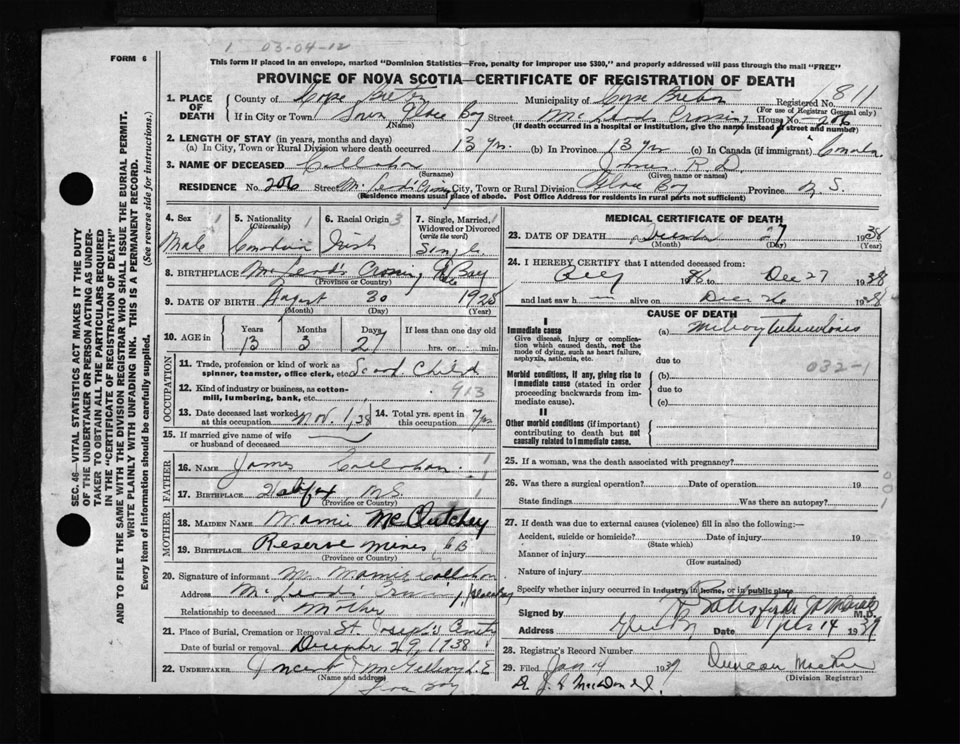 1 03-04-12
FORM 6
This form if placed in an envelope, marked "Dominion Statistics—Free, penalty for improper use $300," and properly addressed will pass through the mail "FREE"
PROVINCE OF NOVA SCOTIA—CERTIFICATE OF REGISTRATION OF DEATH
SEC. 46—VITAL STATISTICS ACT MAKES IT THE DUTY
OF THE UNDERTAKER OR PERSON ACTING AS UNDER-
TAKER TO OBTAIN ALL THE PARTICULARS REQUIRED
IN THE "CERTIFICATE OF REGISTRATION OF DEATH"
AND TO FILE THE SAME WITH THE DIVISION REGISTRAR WHO SHALL ISSUE THE BURIAL PERMIT.
WRITE PLAINLY WITH UNFADING INK. THIS IS A PERMANENT RECORD.
Every item of information should be carefully supplied. (See reverse side for instructions.)
1. PLACE OF DEATH County of Cape Breton Municipality of Cape Breton Registered No. 811
(For use of Registrar General only)
If in City or Town Town Glace Bay Street McLeods Crossing House No. 206
(Name) (If death occurred in a hospital or institution, give the name instead of street and number)
2. LENGTH OF STAY (in years, months and days)
(a) In City, Town or Rural Division where death occurred 13 yrs. (b) In Province 13 yrs (c) In Canada (if immigrant) Canada
3. NAME OF DECEASED Callahan James R. D.
(Surname) (Given name or names)
RESIDENCE No. 206 Street McLeods Crossing City, Town or Rural Division Glace Bay Province N. S.
(Residence means usual place of abode. Post Office Address for residents in rural parts not sufficient)
4. Sex 1 5. Nationality (Citizenship) 1 6. Racial Origin 3 7. Single, Married, Widowed or Divorced (write the word) 1
Male Canadian Irish Single
8. BIRTHPLACE McLeod's Crossing Glace Bay
(Province or Country)
9. DATE OF BIRTH August 30 1925
(Month) (Day) (Year)
10. AGE in Years Months Days If less than one day old
13 3 27 hrs. or min.
OCCUPATION
11. Trade, profession or kind of work as spinner, teamster, office clerk, etc. School Child
12. Kind of industry or business, as cotton-mill, lumbering, bank, etc. 913
13. Date deceased last worked at this occupation Nov. 1, 38 14. Total yrs. spent in this occupation 7 yrs
15. If married give name of wife or husband of deceased
FATHER
16. NAME James Callahan
17. BIRTHPLACE Halifax, N.S. 1
(Province or Country)
MOTHER
18. MAIDEN NAME Mamie McCutchey
19. BIRTHPLACE Reserve Mines C B
(Province or Country)
20. Signature of informant Mrs. Mamie Callahan
Address McLeods Crossing, Glace Bay
Relationship to deceased Mother
21. Place of Burial, Cremation or Removal St. Joseph's
Date of burial or removal December 29, 1938
22. UNDERTAKER Vincent McGillivray
(Name and address)
Glace Bay
MEDICAL CERTIFICATE OF DEATH
23. DATE OF DEATH December 27 1938
(Month) (Day) (Year)
24. I HEREBY CERTIFY that I attended deceased from:
19 to Dec 27 1938
and last saw h alive on Dec 26 1938
CAUSE OF DEATH
I
Immediate cause
Give disease, injury or complication which caused death, not the mode of dying, such as heart failure, asphyxia, asthenia, etc.
(a) Miliary tuberculosis
due to
032-1
Morbid conditions, if any, giving rise to immediate cause (stated in order proceeding backwards from immediate cause).
(b)
due to
(c)
II
Other morbid conditions (if important) contributing to death but not causally related to immediate cause.
25. If a woman, was the death associated with pregnancy?
26. Was there a surgical operation? Date of operation 19
State findings Was there an autopsy?
001
27. If death was due to external causes (violence) fill in also the following:—
Accident, suicide or homicide? Date of injury 19
(State which)
Manner of injury
(How sustained)
Nature of injury
Specify whether injury occurred in industry, in home, or in public place
Signed by M.D.
Address Glace Bay Date 14 1939
28. Registrar's Record Number
29. Filed Jan 14 1939 Duncan
(Division Registrar)